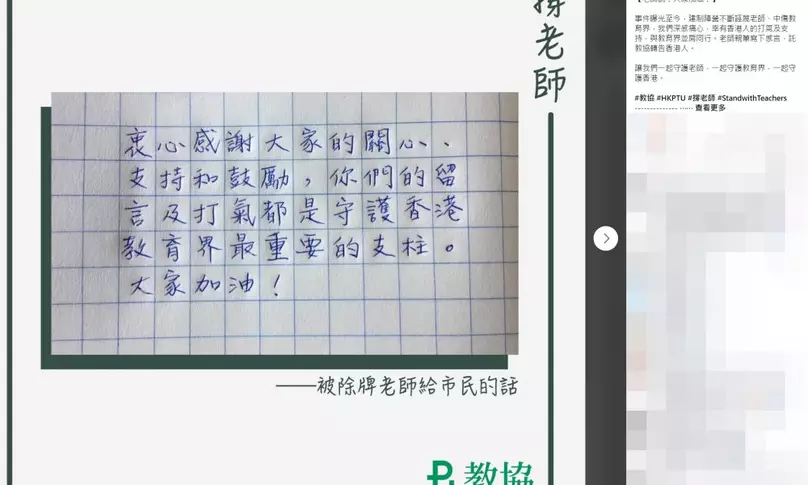 撐老師
衷心感謝大家的關心、
支持和鼓勵，你們的留
言及打氣都是守護香港
教育界最重要的支柱。
大家加油！
——被除牌老師給市民的話
教協
事件曝光至今，建制陣營不斷誣衊老師、中傷教
育界，我們深感痛心，幸有香港人的打氣及支
持，與教育界並肩同行。老師親筆寫下感言，託
教協轉告香港人。
讓我們一起守護老師，一起守護教育界，一起守
護香港。
#教協 #HKPTU #撐老師 #StandwithTeachers
-------------- ····· 查看更多